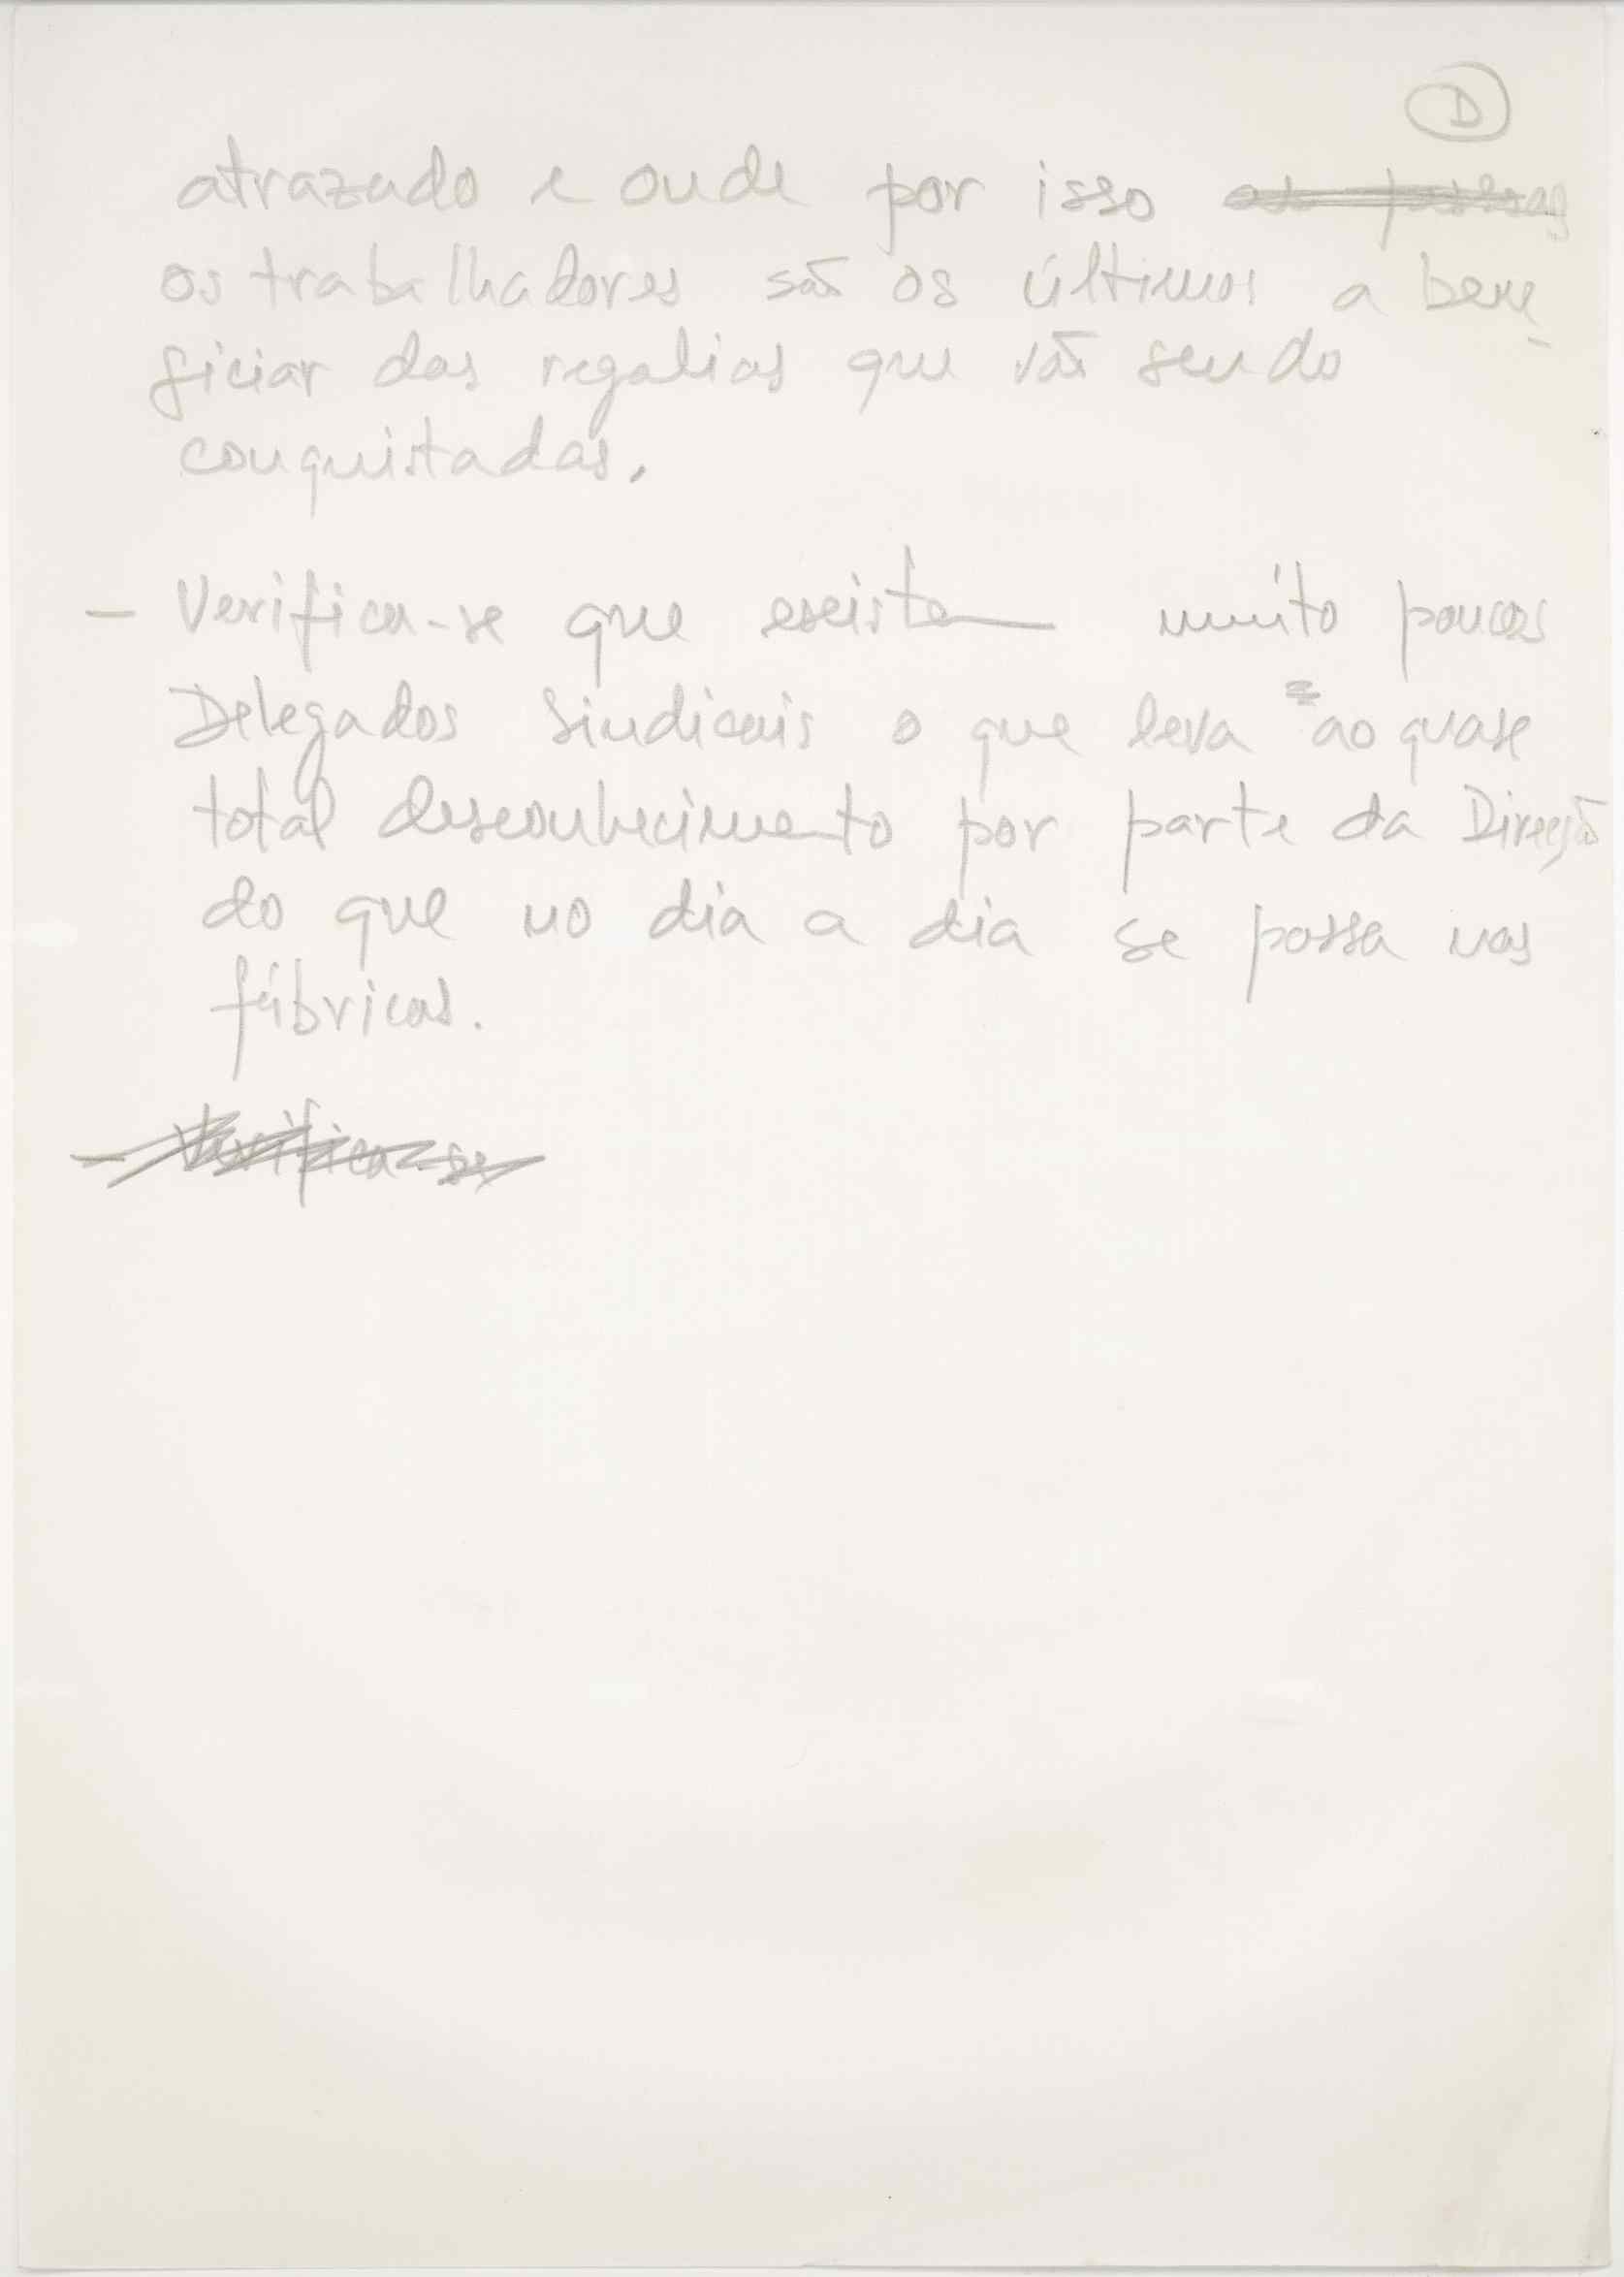 D
atrazado e onde por isso as pessoas
os trabalhadores são os últimos a bene-
ficiar das regalias que vão sendo
conquistadas.
- Verifica-se que existem muito poucos
Delegados Sindicais o que leva ao quase
total desconhecimento por parte da Direcção
do que no dia a dia se passa nas
fábricas.
- Verifica-se